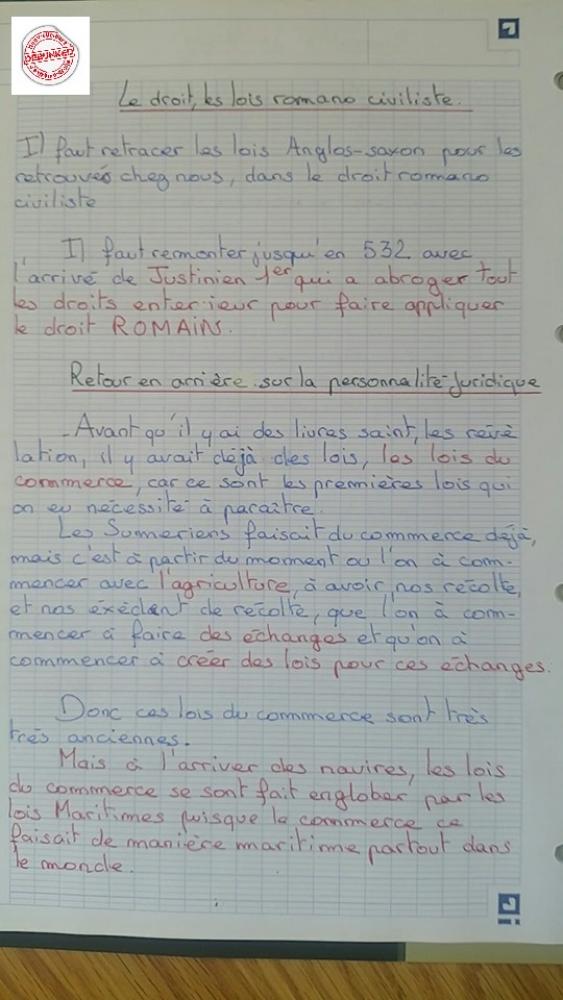 DEBUNKED
Le droit, les lois romano civiliste.
Il faut retracer les lois Anglos-saxon pour les
retrouvés chez nous, dans le droit romano
civiliste
Il faut remonter jusqu'en 532 avec
l'arrivé de Justinien 1er qui a abroger tout
les droits enterieur pour faire appliquer
le droit ROMAIN.
Retour en arrière sur la personnalité-Juridique
- Avant qu'il y ai des livres saint, les révé
lation, il y avait déjà des lois, les lois du
commerce, car ce sont les premières lois qui
on eu nécessité à paraître.
Les Sumeriens faisait du commerce déjà,
mais c'est à partir du moment ou l'on à com-
mencer avec l'agriculture, à avoir nos récolte,
et nos éxédent de récolte, que l'on à com-
mencer à faire des échanges et qu'on à
commencer à créer des lois pour ces échanges.
Donc ces lois du commerce sont très
très anciennes.
Mais à l'arriver des navires, les lois
du commerce se sont fait englober par les
lois Maritimes puisque le commerce ce
faisait de manière maritime partout dans
le monde.